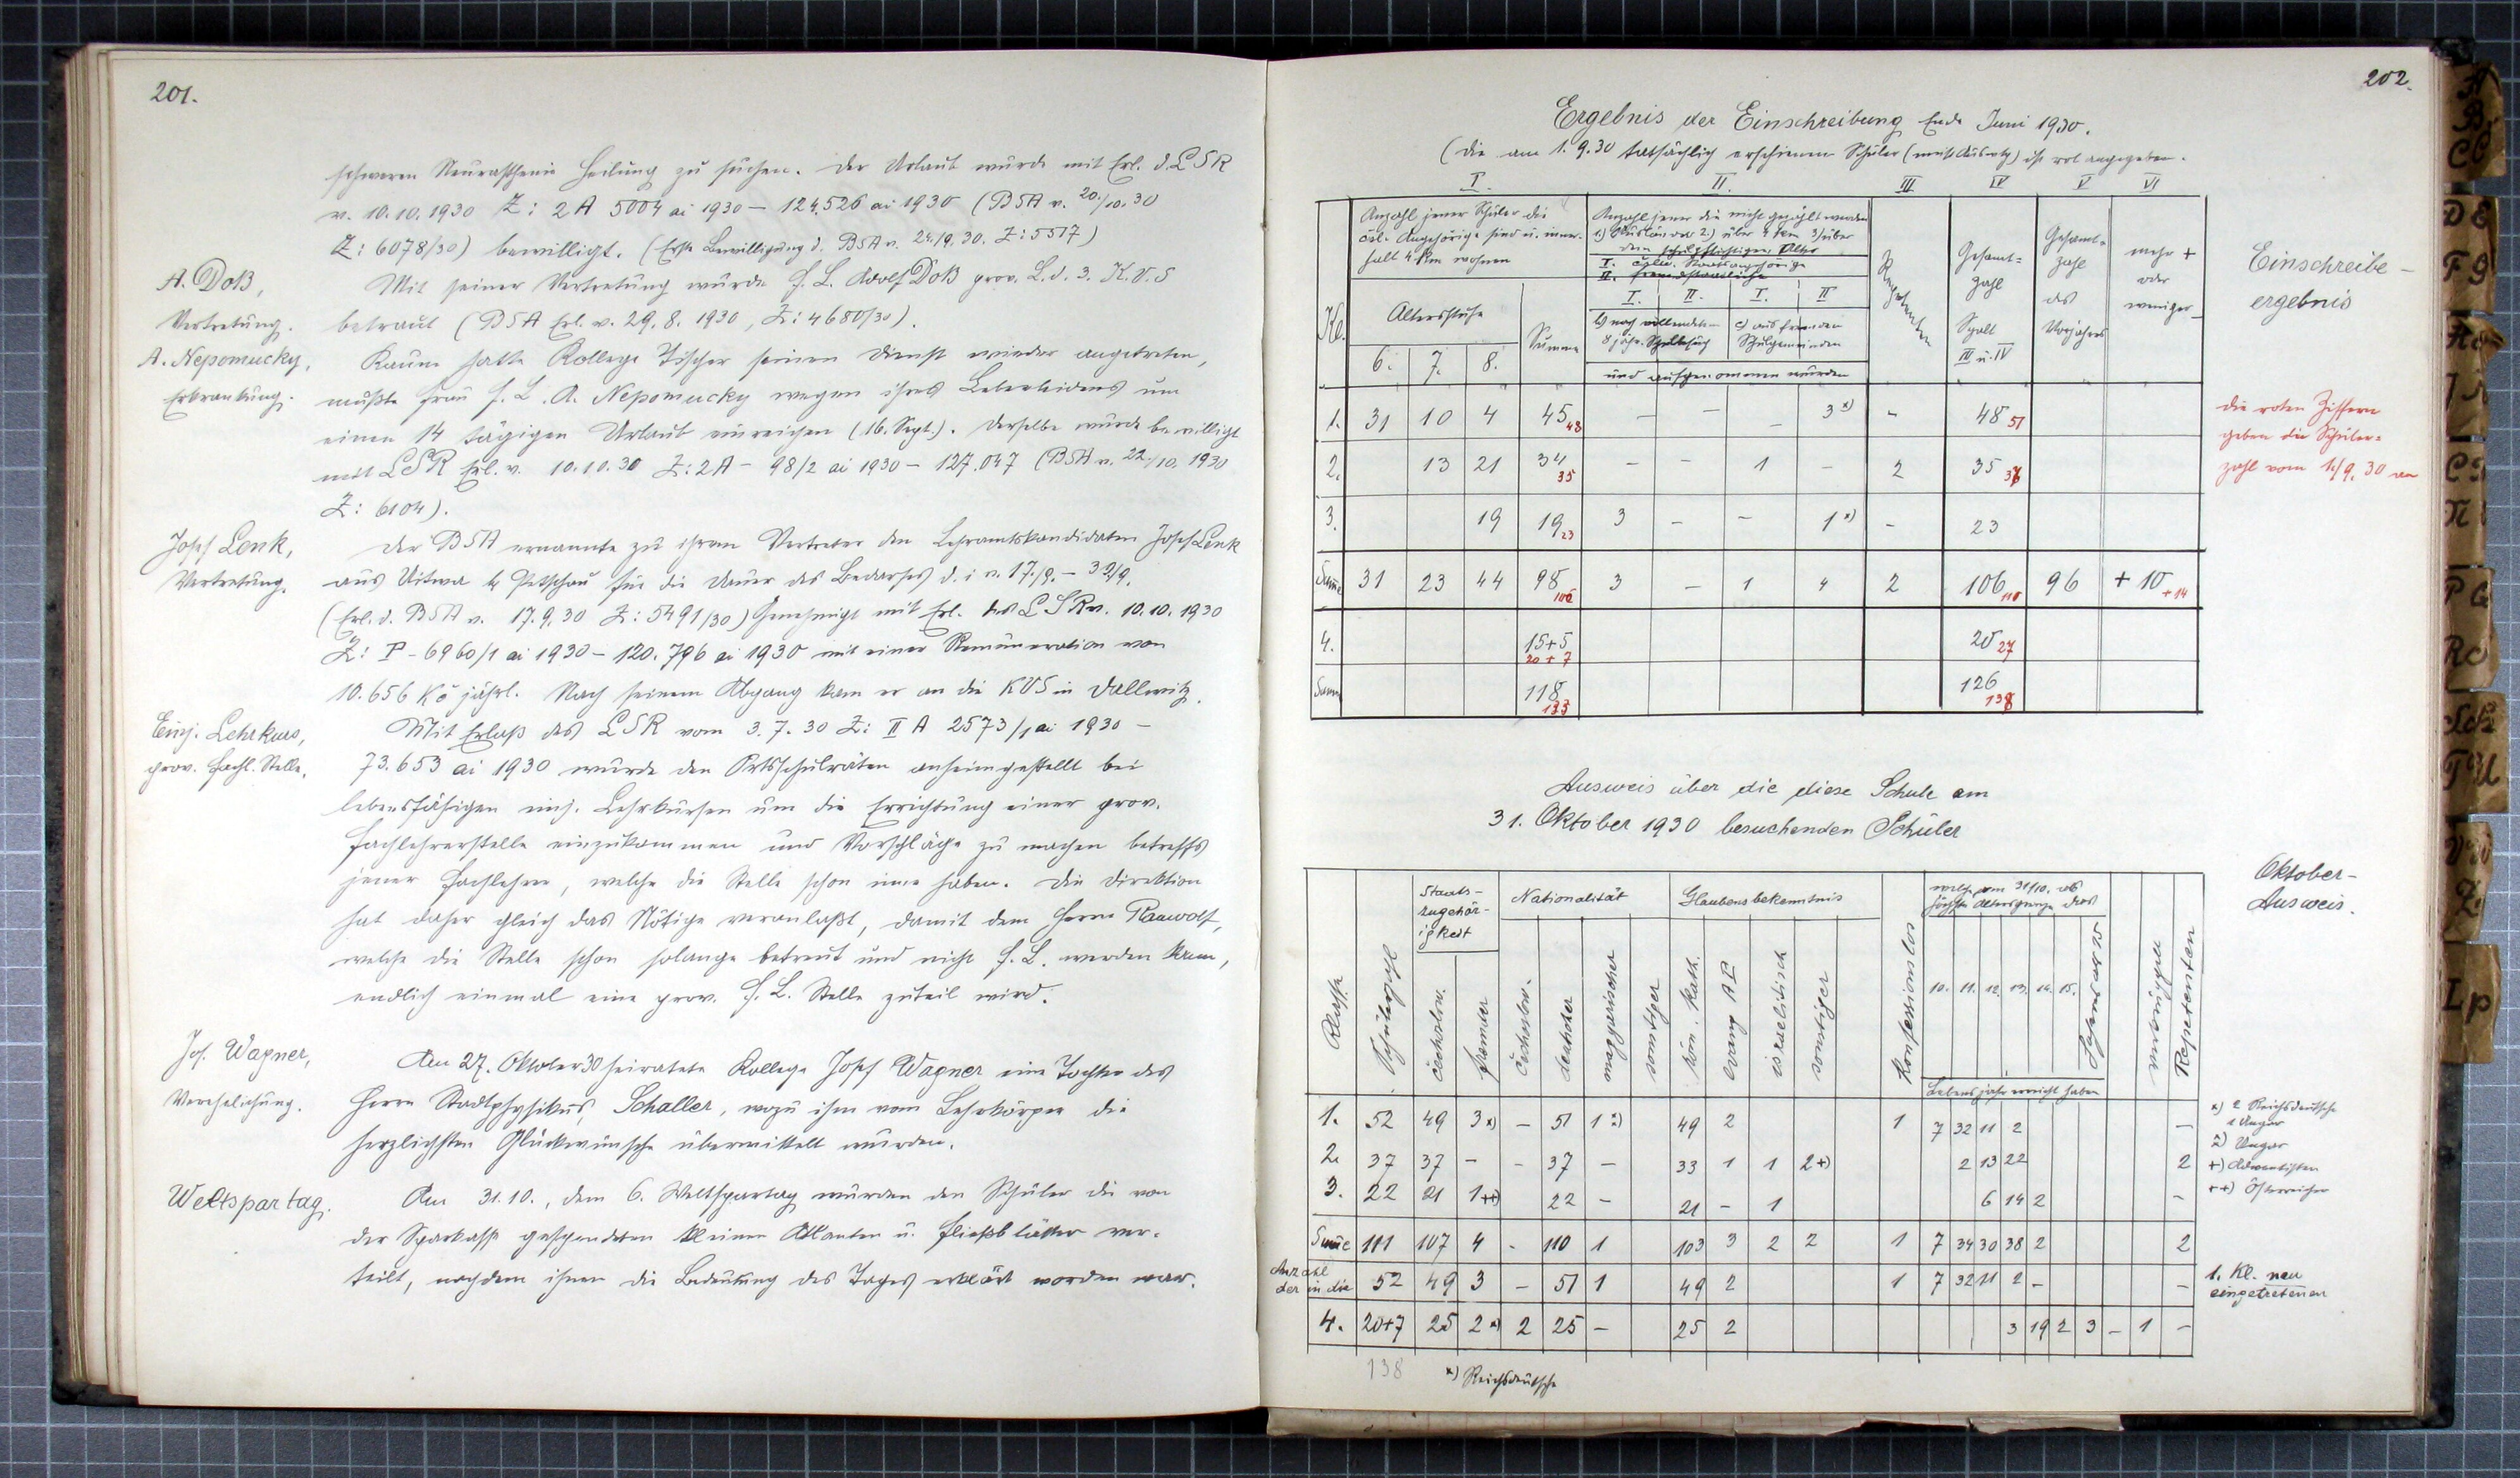 201.
schweren Neurasthenie Heilung zu suchen. Der Urlaub wurde mit Erl. d. LSR
v. 10.10.1930 Z: 2A 5004 ai 1930 – 124.526 ai 1930 (BSA v. 20./10.30
Z: 6078/30) bewilligt. (Erste Bewilligung d. BSA v. 24./9.30. Z: 5517)
A. Doß,
Vertretung.
Mit seiner Vertretung wurde f. L. Adolf Doß prov. L. d. 3. K.V.S
betraut (BSA Erl. v. 29.8.1930, Z: 4680/30).
A. Nepomucky,
Erkrankung.
Kaum hatte Kollege Tischer seinen Dienst wieder angetreten,
mußte Frau f. L. A. Nepomucky wegen ihres Leberleidens um
einen 14 tägigen Urlaub einreichen (16. Sept.). Derselbe wurde bewilligt
mit LSR Erl. v. 10.10.30 Z: 2A – 98/2 ai 1930 – 127.047 (BSA v. 22./10. 1930
Z: 6104).
Josef Lenk,
Vertretung.
Der BSA ernannte zu ihrem Vertreter den Lehramtskandidaten Josef Lenk
aus Uitwa b/ Petschau für die Dauer des Bedarfes d. i v. 17./9. – 30/9.
(Erl. d. BSA v. 17.9.30 Z: 5491/30) Genehmigt mit Erl. des LSR v. 10.10.1930
Z: P – 6960/1 ai 1930 – 120.796 ai 1930 mit einer Remuneration von
10.656 Kč jährl. Nach seinem Abgang kam er an die KVS in Dallwitz.
Einj. Lehrkurs,
prov. Fachl. Stelle.
Mit Erlaß des LSR vom 3.7.30 Z: II A 2573/1 ai 1930 –
73.653 ai 1930 wurde den Ortsschulräten anheimgestellt bei
lebensfähigen einj. Lehrkursen um die Errichtung einer prov.
Fachlehrerstelle einzukommen und Vorschläge zu machen betreffs
jener Fachlehrer, welche die Stelle schon inne haben. Die Direktion
hat daher gleich das Nötige veranlaßt, damit dem Herrn Rauwolf,
welche die Stelle schon solange betreut und nicht f. L. werden kann,
endlich einmal eine prov. f. L. Stelle zuteil wird.
Jos. Wagner,
Verehelichung.
Am 27. Oktober 30 heiratete Kollege Josef Wagner eine Tochter des
Herrn Stadtphysikus, Schaller, wozu ihm vom Lehrkörper die
herzlichsten Glückwünsche übermittelt wurden.
Weltspartag.
Am 31.10., dem 6. Weltspartag wurden den Schülern die von
der Sparkasse gespendeten kleinen Atlanten u. Fließblätter ver-
teilt, nachdem ihnen die Bedeutung des Tages erklärt worden war.
202.
Ergebnis der Einschreibung Ende Juni 1930.
(Die am 1.9.30 tatsächlich erschienenen Schüler (mit Ausweis) ist rot angegeben.
I. II. III IV V VI
Kl.
Anzahl jener Schüler die
čsl. Angehörige sind u. inner-
halb 4 km wohnen
Altersstufe
6. 7. 8. Summe
Anzahl jener die nicht gezählt werden
1.) Ausländer 2.) über 4 km 3) über
dem schulpflichtigen Alter
I. čslw. Staatsangehörige
II. fremdstaatliche
I. II. I. II
b) nach vollendetem
8 jähr. Schulbesuch
c) aus fremden
Schulgemeinden
und aufgenommen wurden
Repetenten
Gesamt-
zahl
Spalt
III u. IV
Gesamt-
zahl
des
Vorjahres
mehr +
oder
weniger –
Einschreibe-
ergebnis
1. 31 10 4 45 48 – – – 3 x) – 48 51
2. 13 21 34 35 – – 1 – 2 35 37
3. 19 19 23 3 – – 1 x) – 23
Summe 31 23 44 98 106 3 – 1 4 2 106 110 96 + 10 + 14
4. 15+5 20+7 20 27
Summe 118 133 126 138
Die roten Ziffern
geben die Schüler-
zahl vom 1./9.30 an
Ausweis über die diese Schule am
31. Oktober 1930 besuchenden Schüler
Oktober-
Ausweis.
Klasse
Schülerzahl
Staats-
zugehör-
igkeit
čechoslow.
fremder
Nationalität
čechoslow.
deutscher
magyarischer
sonstiger
Glaubensbekenntnis
röm. kath.
evang AB
israelitisch
sonstiger
Konfessionslos
welche am 31/10. als
höchste Altersgrenze das
10. 11. 12. 13. 14. 15.
Lebensjahr erreicht haben
Repetenten
1. 52 49 3 x) – 51 1 2) 49 2 1 7 32 11 2 –
2. 37 37 – – 37 – 33 1 1 2 +) 2 13 22 2
3. 22 21 1 ++) 22 – 21 – 1 6 14 2 –
Summe 111 107 4 – 110 1 103 3 2 2 1 7 34 30 38 2 2
Anzahl
der in die 52 49 3 – 51 1 49 2 1 7 32 11 2 – –
4. 20+7 25 2 x) 2 25 – 25 2 3 19 2 3 – 1 –
x) 2 Reichsdeutsche
1 Ungar
2) Ungar
+) Adventisten
++) Österreicher
1. Kl. neu
eingetretenen
138
x) Reichsdeutsche